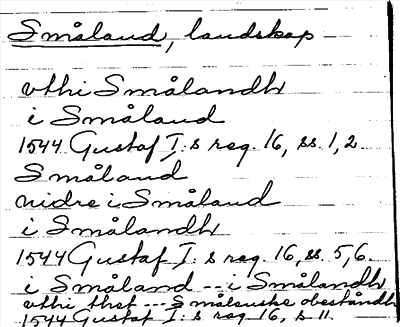 Småland, landskap
vthi Smålandh
i Småland
1544 Gustaf I:s reg. 16, ss. 1, 2
Småland
nidre i Småland
i Smålandh
1544 Gustaf I:s reg. 16, ss. 5, 6.
i Småland --- i Smålandh
vthi thet --- Smålenske obeståndh
1544 Gustaf I:s reg. 16, s 11.